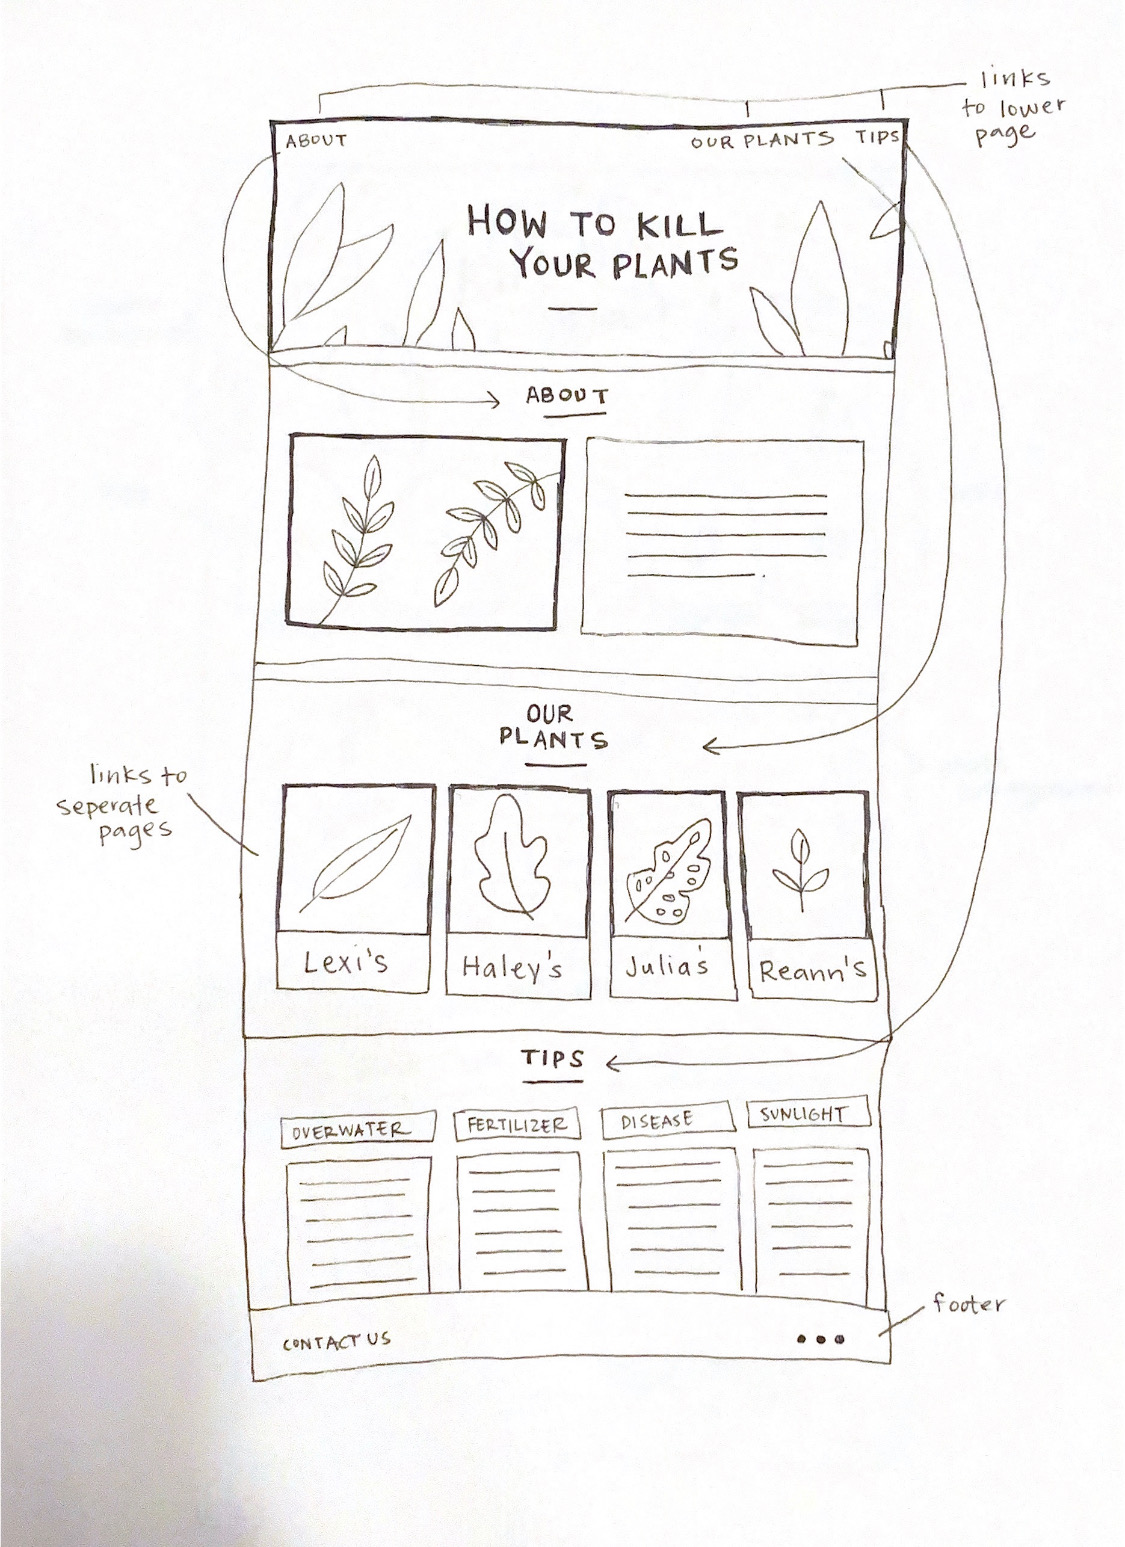 links
to lower
page
ABOUT
OUR PLANTS
TIPS
HOW TO KILL
YOUR PLANTS
ABOUT
OUR
PLANTS
links to
seperate
pages
Lexi's
Haley's
Julia's
Reann's
TIPS
OVERWATER
FERTILIZER
DISEASE
SUNLIGHT
footer
CONTACT US